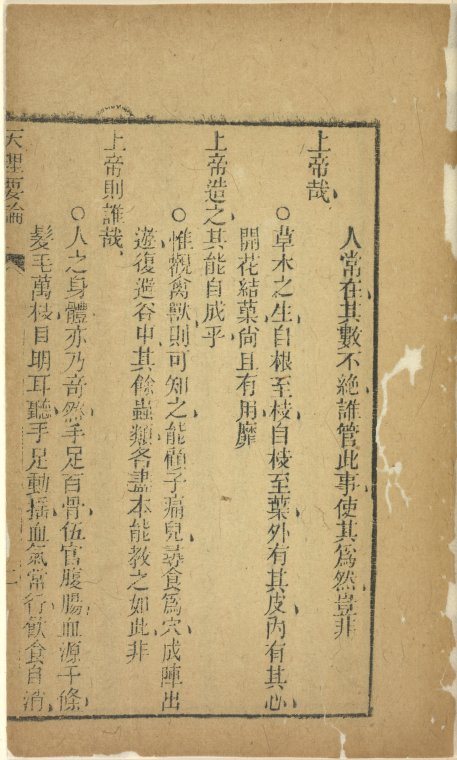 人常在其數不絕誰管此事使其爲然豈非
上帝哉
○草木之生自根至枝自枝至葉外有其皮內有其心
開花結菓尙且有用靡
上帝造之其能自成乎
○惟觀禽獸則可知之能顧子痛兒尋食爲穴成陣出
遊復進谷中其餘蟲類各盡本能教之如此非
上帝則誰哉
○人之身體亦乃奇然手足百骨伍官腹腸血源千條
髮毛萬枝目明耳聽手足動搖血氣常行飮食自消
天理要論